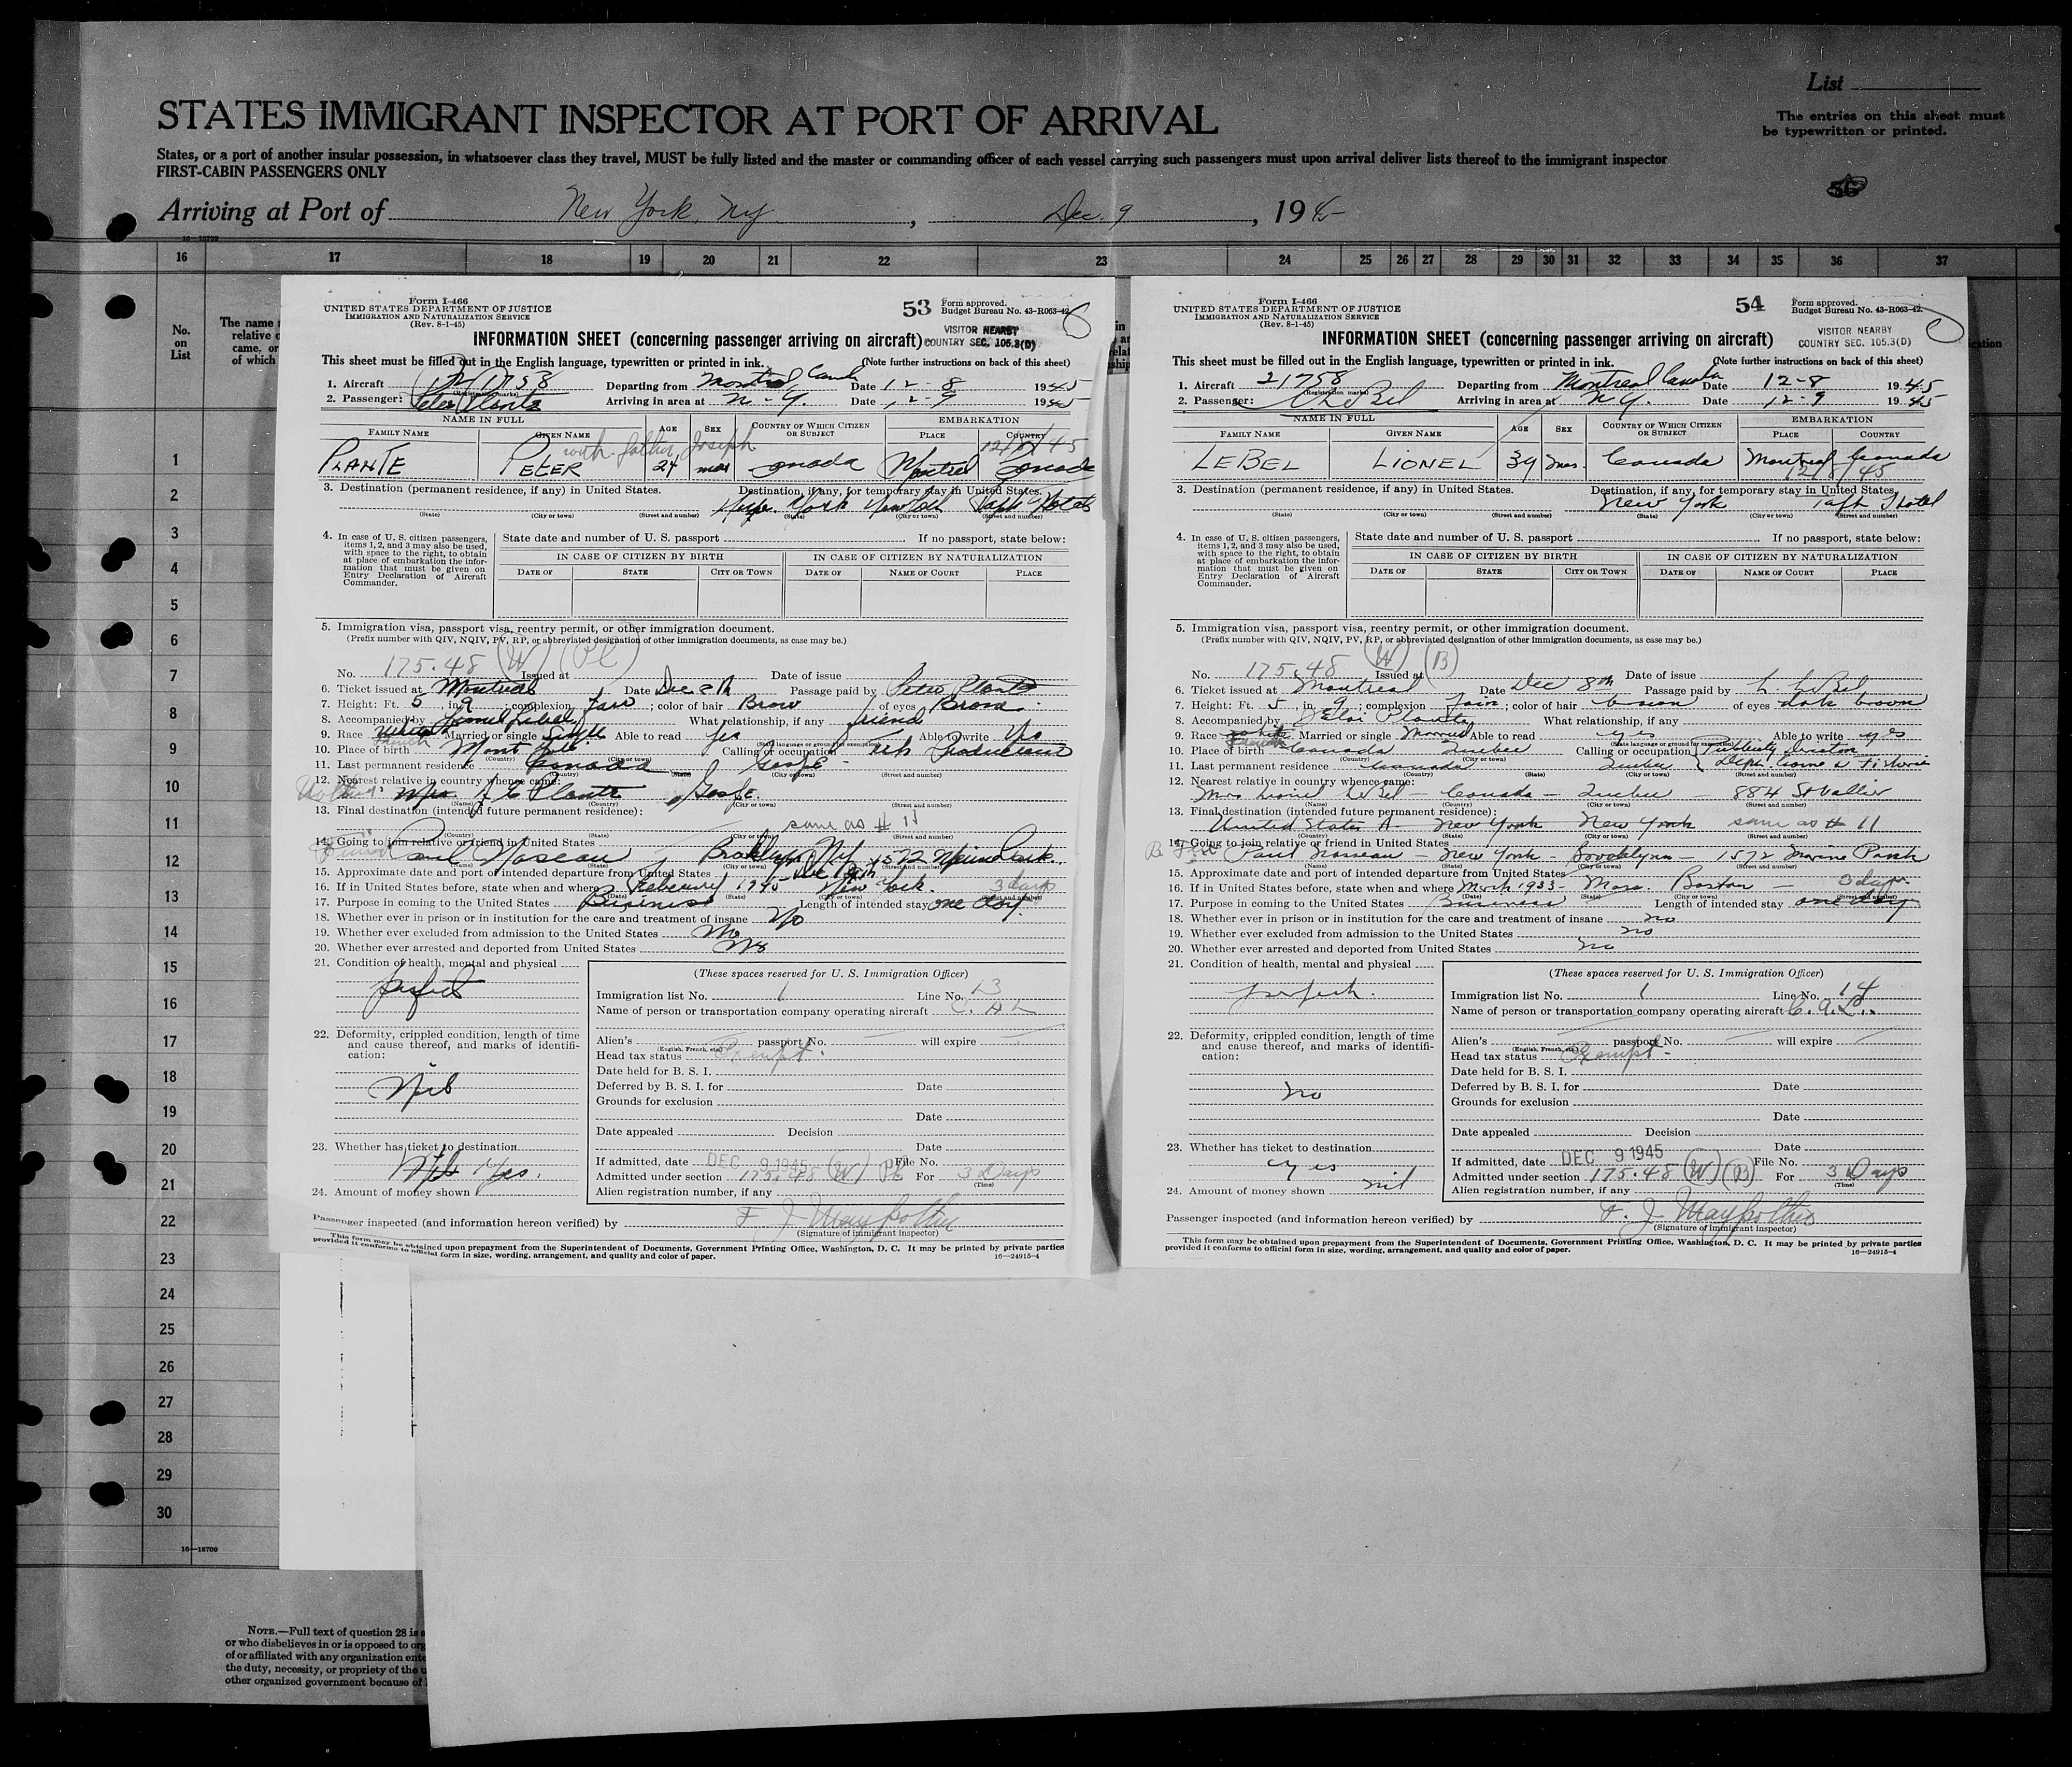 List
STATES IMMIGRANT INSPECTOR AT PORT OF ARRIVAL
The entries on this sheet must
be typewritten or printed.
States, or a port of another insular possession, in whatsoever class they travel, MUST be fully listed and the master or commanding officer of each vessel carrying such passengers must upon arrival deliver lists thereof to the immigrant inspector
FIRST-CABIN PASSENGERS ONLY
Arriving at Port of New York, NY, Dec. 9, 1945
16—18709
16 17 18 19 20 21 22 23 24 25 26 27 28 29 30 31 32 33 34 35 36 37
No.
on
List
The name
relative
came, or
of which
1
2
3
4
5
6
7
8
9
10
11
12
13
14
15
16
17
18
19
20
21
22
23
24
25
26
27
28
29
30
16—18709
Form I-466
UNITED STATES DEPARTMENT OF JUSTICE
IMMIGRATION AND NATURALIZATION SERVICE
(Rev. 8-1-45)
53
Form approved.
Budget Bureau No. 43-R063-42.
INFORMATION SHEET (concerning passenger arriving on aircraft)
VISITOR NEARBY
COUNTRY SEC. 105.3(D)
This sheet must be filled out in the English language, typewritten or printed in ink. (Note further instructions on back of this sheet)
1. Aircraft (Registration marks) Departing from Montreal Date 12-8 1945
2. Passenger: Peter Plante Arriving in area at N.Y. Date 12-9 1945
NAME IN FULL AGE SEX COUNTRY OF WHICH CITIZEN OR SUBJECT EMBARKATION
FAMILY NAME GIVEN NAME PLACE COUNTRY
with father Joseph 12/8/45
PLANTE PETER 24 Canada Montreal Canada
3. Destination (permanent residence, if any) in United States. Destination, if any, for temporary stay in United States.
New York New York Taft Hotel
(State) (City or town) (Street and number) (State) (City or town) (Street and number)
4. In case of U. S. citizen passengers,
items 1, 2, and 3 may also be used,
with space to the right, to obtain
at place of embarkation the infor-
mation that must be given on
Entry Declaration of Aircraft
Commander.
State date and number of U. S. passport If no passport, state below:
IN CASE OF CITIZEN BY BIRTH IN CASE OF CITIZEN BY NATURALIZATION
DATE OF STATE CITY OR TOWN DATE OF NAME OF COURT PLACE
5. Immigration visa, passport visa, reentry permit, or other immigration document.
(Prefix number with QIV, NQIV, PV, RP, or abbreviated designation of other immigration documents, as case may be.)
No. 175.48 (W) (PL) Issued at Date of issue
6. Ticket issued at Montreal Date Dec 8th Passage paid by Peter Plante
7. Height: Ft. 5, in. 9; complexion Fair; color of hair Brow of eyes Brown
8. Accompanied by Lionel Lebel What relationship, if any friend
9. Race White French Married or single Single Able to read yes Able to write yes
10. Place of birth Mont Joli Calling or occupation Fish
11. Last permanent residence Canada Gaspe
12. Nearest relative in country whence came:
Mother: Mrs. Plante Gaspe
(Name) (Country) (City or town) (Street and number)
13. Final destination (intended future permanent residence):
same as # 11
(Country) (State) (City or town) (Street and number)
14. Going to join relative or friend in United States
Friend Paul Brooklyn NY 1572
15. Approximate date and port of intended departure from United States
16. If in United States before, state when and where February 1945 New York. 3 days
17. Purpose in coming to the United States Business Length of intended stay one day
18. Whether ever in prison or in institution for the care and treatment of insane No
19. Whether ever excluded from admission to the United States No
20. Whether ever arrested and deported from United States No
21. Condition of health, mental and physical
perfect
22. Deformity, crippled condition, length of time
and cause thereof, and marks of identifi-
cation:
Nil
23. Whether has ticket to destination
Yes.
24. Amount of money shown
(These spaces reserved for U. S. Immigration Officer)
Immigration list No. 1 Line No. 13
Name of person or transportation company operating aircraft C. A L
Alien's (English, French, etc.) passport No. will expire
Head tax status Exempt.
Date held for B. S. I.
Deferred by B. S. I. for Date
Grounds for exclusion
Date
Date appealed Decision
Date
If admitted, date DEC 9 1945 File No.
Admitted under section 175.48 (W) PL For 3 Days
(Time)
Alien registration number, if any
Passenger inspected (and information hereon verified) by F. J.
(Signature of immigrant inspector)
This form may be obtained upon prepayment from the Superintendent of Documents, Government Printing Office, Washington, D. C. It may be printed by private parties
provided it conforms to official form in size, wording, arrangement, and quality and color of paper. 16—24915-4
Form I-466
UNITED STATES DEPARTMENT OF JUSTICE
IMMIGRATION AND NATURALIZATION SERVICE
(Rev. 8-1-45)
54
Form approved.
Budget Bureau No. 43-R063-42.
INFORMATION SHEET (concerning passenger arriving on aircraft)
VISITOR NEARBY
COUNTRY SEC. 105.3(D)
This sheet must be filled out in the English language, typewritten or printed in ink. (Note further instructions on back of this sheet)
1. Aircraft 21758 (Registration marks) Departing from Montreal Canada Date 12-8 1945
2. Passenger: L. LeBel Arriving in area at N.Y. Date 12-9 1945
NAME IN FULL AGE SEX COUNTRY OF WHICH CITIZEN OR SUBJECT EMBARKATION
FAMILY NAME GIVEN NAME PLACE COUNTRY
LEBEL LIONEL 34 mas. Canada Montreal Canada
12/8/45
3. Destination (permanent residence, if any) in United States. Destination, if any, for temporary stay in United States.
New York Taft Hotel
(State) (City or town) (Street and number) (State) (City or town) (Street and number)
4. In case of U. S. citizen passengers,
items 1, 2, and 3 may also be used,
with space to the right, to obtain
at place of embarkation the infor-
mation that must be given on
Entry Declaration of Aircraft
Commander.
State date and number of U. S. passport If no passport, state below:
IN CASE OF CITIZEN BY BIRTH IN CASE OF CITIZEN BY NATURALIZATION
DATE OF STATE CITY OR TOWN DATE OF NAME OF COURT PLACE
5. Immigration visa, passport visa, reentry permit, or other immigration document.
(Prefix number with QIV, NQIV, PV, RP, or abbreviated designation of other immigration documents, as case may be.)
No. 175.48 (W) (B) Issued at Date of issue
6. Ticket issued at Montreal Date Dec 8th Passage paid by L. LeBel
7. Height: Ft. 5, in. 9; complexion Fair; color of hair brown of eyes dark brown
8. Accompanied by Plante What relationship, if any
9. Race white French Married or single Married Able to read yes Able to write yes
10. Place of birth Canada Quebec Calling or occupation Publicity Director
11. Last permanent residence Canada Quebec Depth. Game & Fisheries
12. Nearest relative in country whence came:
Mrs Lionel LeBel — Canada — Quebec — 884 St Vallier
(Name) (Country) (City or town) (Street and number)
13. Final destination (intended future permanent residence):
United States A — New York New York same as # 11
(Country) (State) (City or town) (Street and number)
14. Going to join relative or friend in United States
Paul — New York — Brooklynn — 1572 Marine Park
15. Approximate date and port of intended departure from United States
16. If in United States before, state when and where March 1933 — Mass. Boston — 3 days
17. Purpose in coming to the United States Business Length of intended stay one day
18. Whether ever in prison or in institution for the care and treatment of insane no
19. Whether ever excluded from admission to the United States no
20. Whether ever arrested and deported from United States no
21. Condition of health, mental and physical
perfect.
22. Deformity, crippled condition, length of time
and cause thereof, and marks of identifi-
cation:
no
23. Whether has ticket to destination
yes
24. Amount of money shown nil
(These spaces reserved for U. S. Immigration Officer)
Immigration list No. 1 Line No. 14
Name of person or transportation company operating aircraft C. A. L.
Alien's (English, French, etc.) passport No. will expire
Head tax status Exempt-
Date held for B. S. I.
Deferred by B. S. I. for Date
Grounds for exclusion
Date
Date appealed Decision
Date
If admitted, date DEC 9 1945 File No.
Admitted under section 175.48 (W) (B) For 3 Days
(Time)
Alien registration number, if any
Passenger inspected (and information hereon verified) by F. J.
(Signature of immigrant inspector)
This form may be obtained upon prepayment from the Superintendent of Documents, Government Printing Office, Washington, D. C. It may be printed by private parties
provided it conforms to official form in size, wording, arrangement, and quality and color of paper. 16—24915-4
NOTE.—Full text of question 28 is
or who disbelieves in or is opposed to
of or affiliated with any organization
the duty, necessity, or propriety of the
other organized government because of